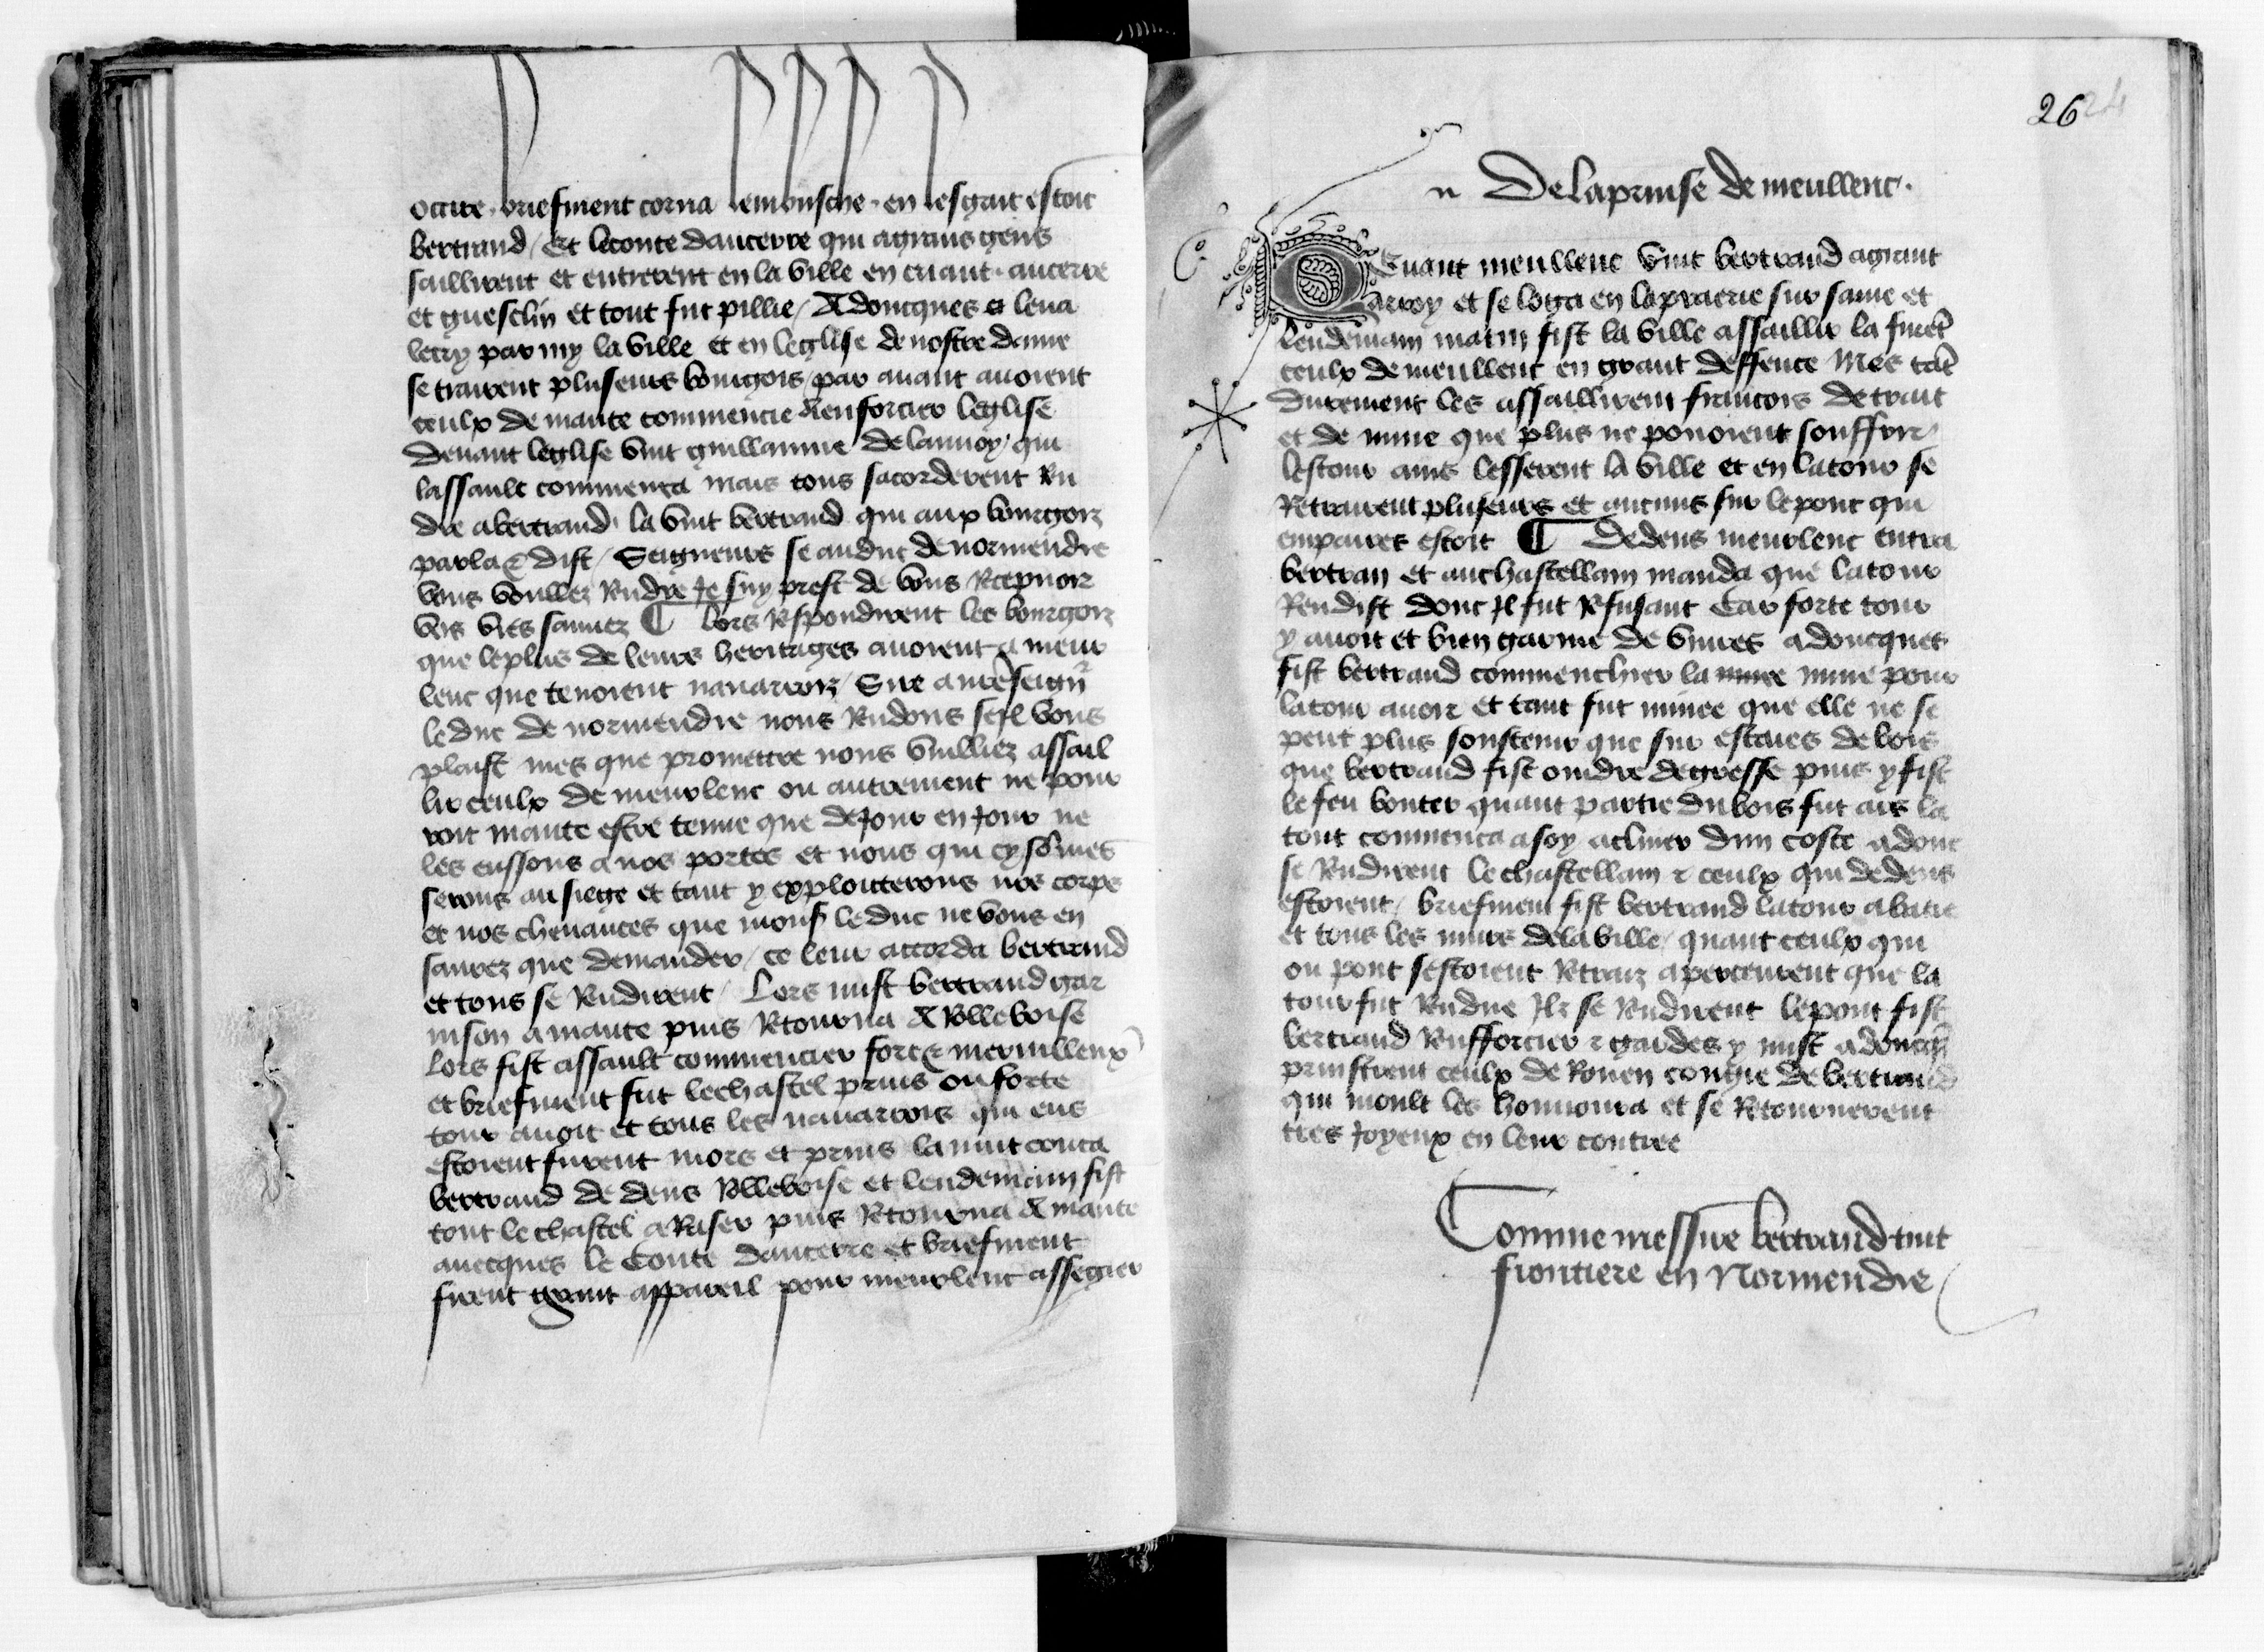 occire briefment corna lembusche en lesgait estoit
bertrand / Et leconte daucerre qui agrans gens
saillirent et entrerent en la ville en criant aucerre
et guesclin et tout fut pillie / Adoncques leua
lecry par my la ville et en leglise de nostre dame
se trairent pluseurs bourgois / par auant auoient
ceulx de mante commencie Aenforcier leglise
Deuant leglise vint guillaume de lannoy / qui
lassault commenca mais tous sacorderent Ren
dre abertrand la vint bertrand qui aux bourgoiz
parla & dist / Seigneurs se auduc de normendie
vous voullez Rendre Je suy prest de vous Recepuoir
voz vies sauuez ¶ lors Respondirent les bourgoiz
que leplus de leurs heritages auoient a meur
lenc que tenoient nauarroiz / Sire a nre seignr
le duc de normendie nous Rendons sejl vous
plaist mes que promettre nous vuilliez assail
lir ceulx de meurlenc ou autrement ne pour
roit mante estre tenue que de Jour en Jour ne
les eussons a nos portes et nous qui cy sommes
serons au siege et tant y exploicterons noz corps
et nos cheuances que monsr le duc ne vous en
saurez que demander / ce leur accorda bertrand
et tous se Rendirent / Lors mist bertrand gar
nison a mante puis Retourna A Rolleboise
Lors fist assault commencier fort & merueilleux
et briefment fut lechastel prins ou forte
tour auoit et tous les nauarrois qui ens
estoient furent mors et prins la nuit coucha
bertrand de dens Rolleboise et lendemain fist
tout le chastel a Raser puis Retourna A mante
auecques le Conte daucerre et briefment
firent grant appareil pour meurlenc assegier
26 24
n De la prinse de meullenc.
Deuant meullenc vint bertrand agrant
arroy et se loga en la praerie sur saine et
lendemain matin fist la ville assaillir la furet
ceulx de meullenc en grant deffence Mes tat
durement les assaillirent francois de trait
et de mine que plus ne pouoient souffrir
lestour ains lesserent la ville et en latour se
Retrairent pluseurs et aucuns sur lepont qui
empairez estoit ¶ Dedens meurlenc entra
bertran et auchastellain manda que latour
Rendist dont Jl fut Refusant Car forte tour
y auoit et bien garnie de viures adoncques
fist bertrand commenchier la mine pour
latour auoir et tant fut minee que elle ne se
peut plus soustenir que sur estaies de bois
que bertrand fist oindre degresse puis y fist
le feu bouter quant partie du bois fut ars la
tour commenca a soy acliner dun coste adonc
se Rendirent le chastellain & ceulx qui dedens
estoient / briefment fist bertrand latour abatre
et tous les murs dela ville / quant ceulx qui
ou pont sestoient Retraiz aperceurent que la
tour fut Rendue Jlz se Rendirent lepont fist
bertrand Renfforcier & gardes y mist adoncqs
prinstrent ceulx de Rouen congie de bertrand
qui moult les honnoura et se Retournerent
tres Joyeux en leur contree
Comme messire bertrand tint
frontiere en Normendie